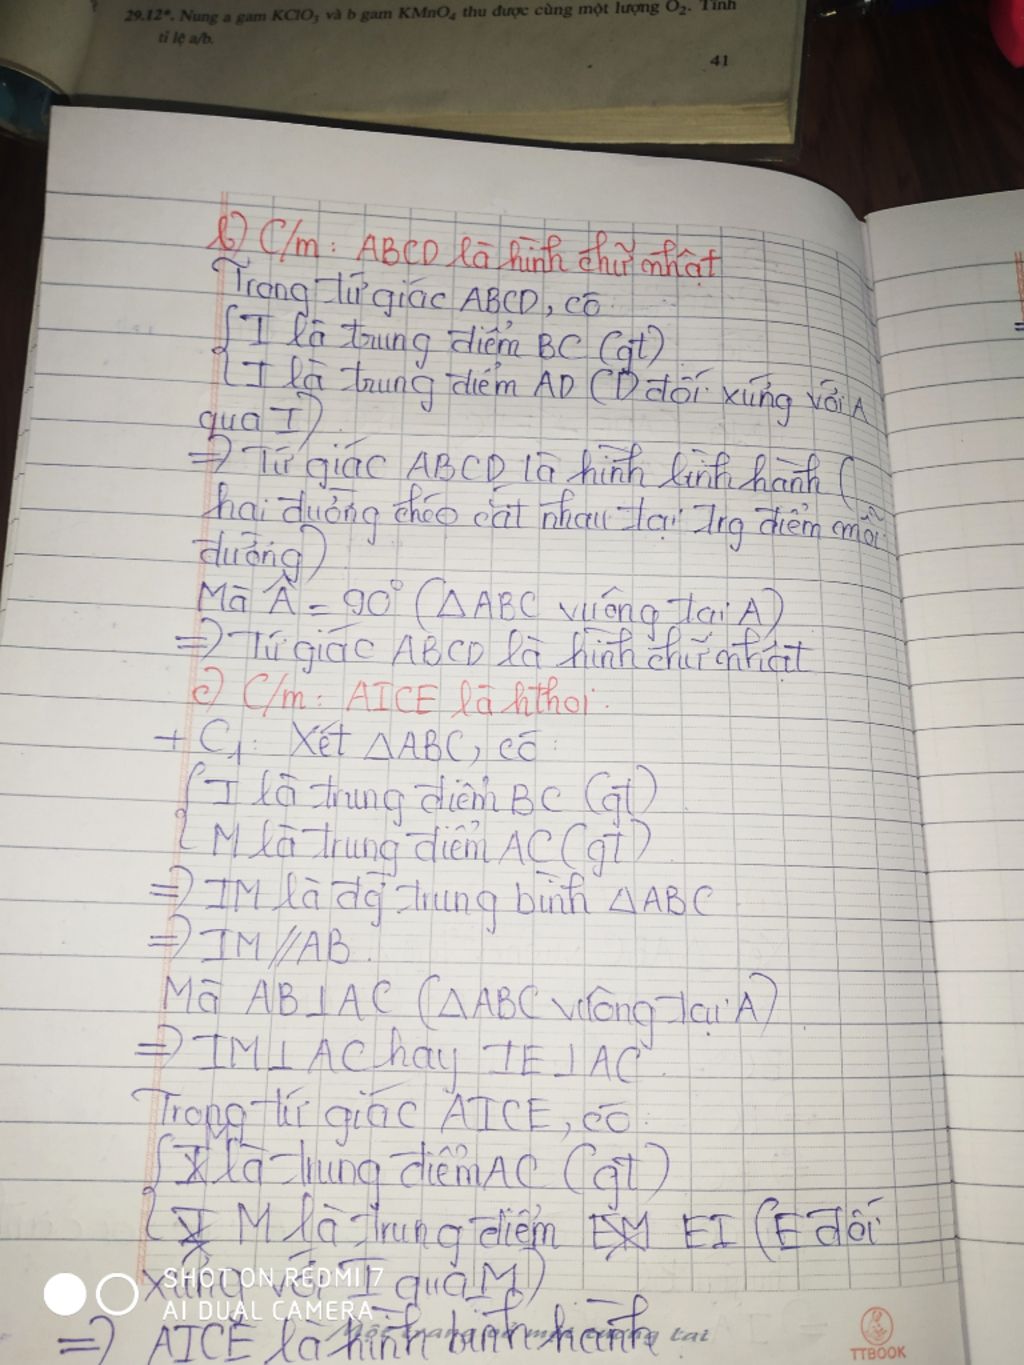 29.12*. Nung a gam KClO₃ và b gam KMnO₄ thu được cùng một lượng O₂. Tính
tỉ lệ a/b.
41
b) C/m: ABCD là hình chữ nhật
Trong tứ giác ABCD, có:
{ I là trung điểm BC (gt)
{ I là trung điểm AD (D đối xứng với A
qua I)
=> Tứ giác ABCD là hình bình hành (
hai đường chéo cắt nhau tại trg điểm mỗi
đường)
Mà Â = 90° (△ABC vuông tại A)
=> Tứ giác ABCD là hình chữ nhật
c) C/m: AICE là hthoi.
+ C₁: Xét △ABC, có:
{ I là trung điểm BC (gt)
{ M là trung điểm AC (gt)
=> IM là đg trung bình △ABC
=> IM // AB.
Mà AB⊥AC (△ABC vuông tại A)
=> IM⊥AC hay IE⊥AC
Trong tứ giác AICE, có:
{ M là trung điểm AC (gt)
{ M là trung điểm EI (E đối
xứng với I qua M)
SHOT ON REDMI 7
AI DUAL CAMERA
=> AICE là hình bình hành
TTBOOK